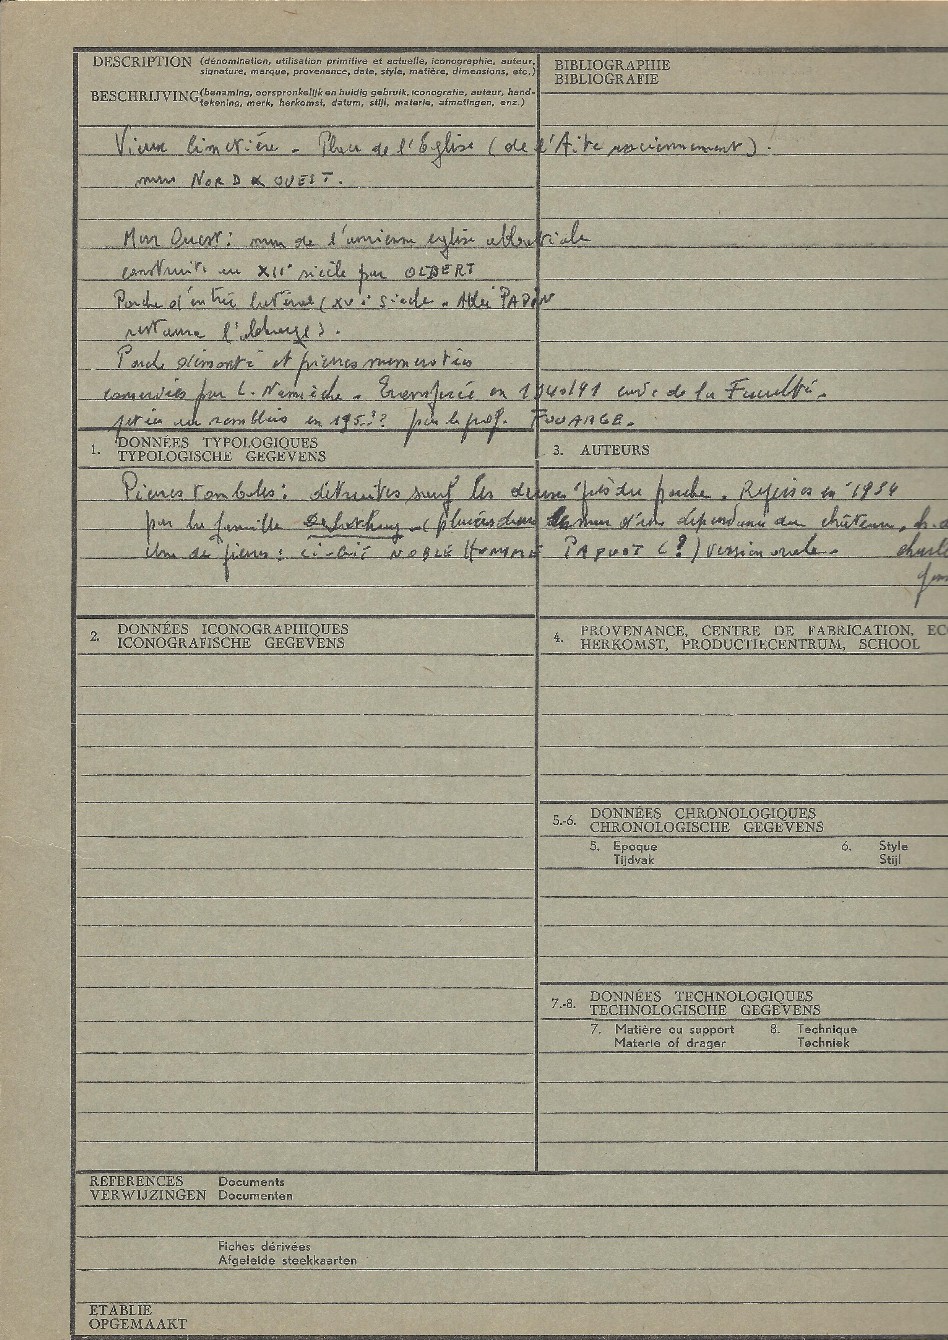 DESCRIPTION (dénomination, utilisation primitive et actuelle, iconographie, auteur,
signature, marque, provenance, date, style, matière, dimensions, etc.)
BESCHRIJVING (benaming, oorspronkelijk en huidig gebruik, iconografie, auteur, hand-
tekening, merk, herkomst, datum, stijl, materie, afmetingen, enz.)
BIBLIOGRAPHIE
BIBLIOGRAFIE
Vieux Cimetière - Place de l'Eglise (de l'Aite anciennement).
murs NORD & OUEST.
Mur Ouest: mur de l'ancienne église abbatiale
construite au XIIe siècle par OLBERT
Porche d'entrée latéral (XVe siècle - Abbé PAPIN
restaure l'
Porche démonté et pierres numérotées
conservées par L. Namèche. Transférée en 1940/41 cave de la Faculté.
jetées en remblais en 195?? par le prof. FOUARGE.
1. DONNÉES TYPOLOGIQUES
TYPOLOGISCHE GEGEVENS
3. AUTEURS
Pierres tombales: détruites sauf les deux près du porche. Reprises en 1934
par la famille (placées dans le mur d'une dépendance du château,
Une des pierres: ci-gît NOBLE HOMME PAQUOT (?) version orale.
2. DONNÉES ICONOGRAPHIQUES
ICONOGRAFISCHE GEGEVENS
4. PROVENANCE, CENTRE DE FABRICATION, EC
HERKOMST, PRODUCTIECENTRUM, SCHOOL
5.-6. DONNÉES CHRONOLOGIQUES
CHRONOLOGISCHE GEGEVENS
5. Epoque 6. Style
Tijdvak Stijl
7.-8. DONNÉES TECHNOLOGIQUES
TECHNOLOGISCHE GEGEVENS
7. Matière ou support 8. Technique
Materie of drager Techniek
REFERENCES Documents
VERWIJZINGEN Documenten
Fiches dérivées
Afgeleide steekkaarten
ETABLIE
OPGEMAAKT